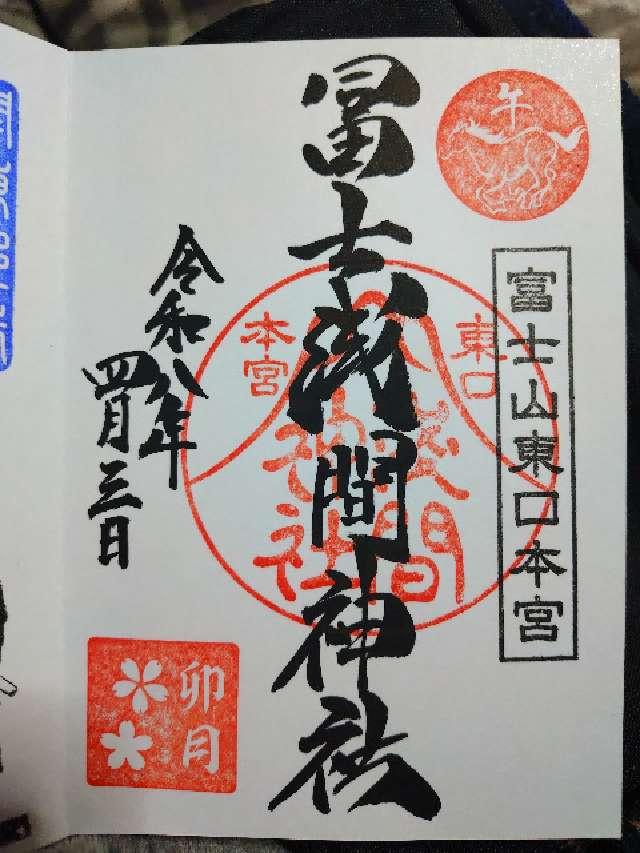 午
富士山東口本宮
冨士浅間神社
東口
本宮
浅間
神社
令和八年
四月三日
卯月